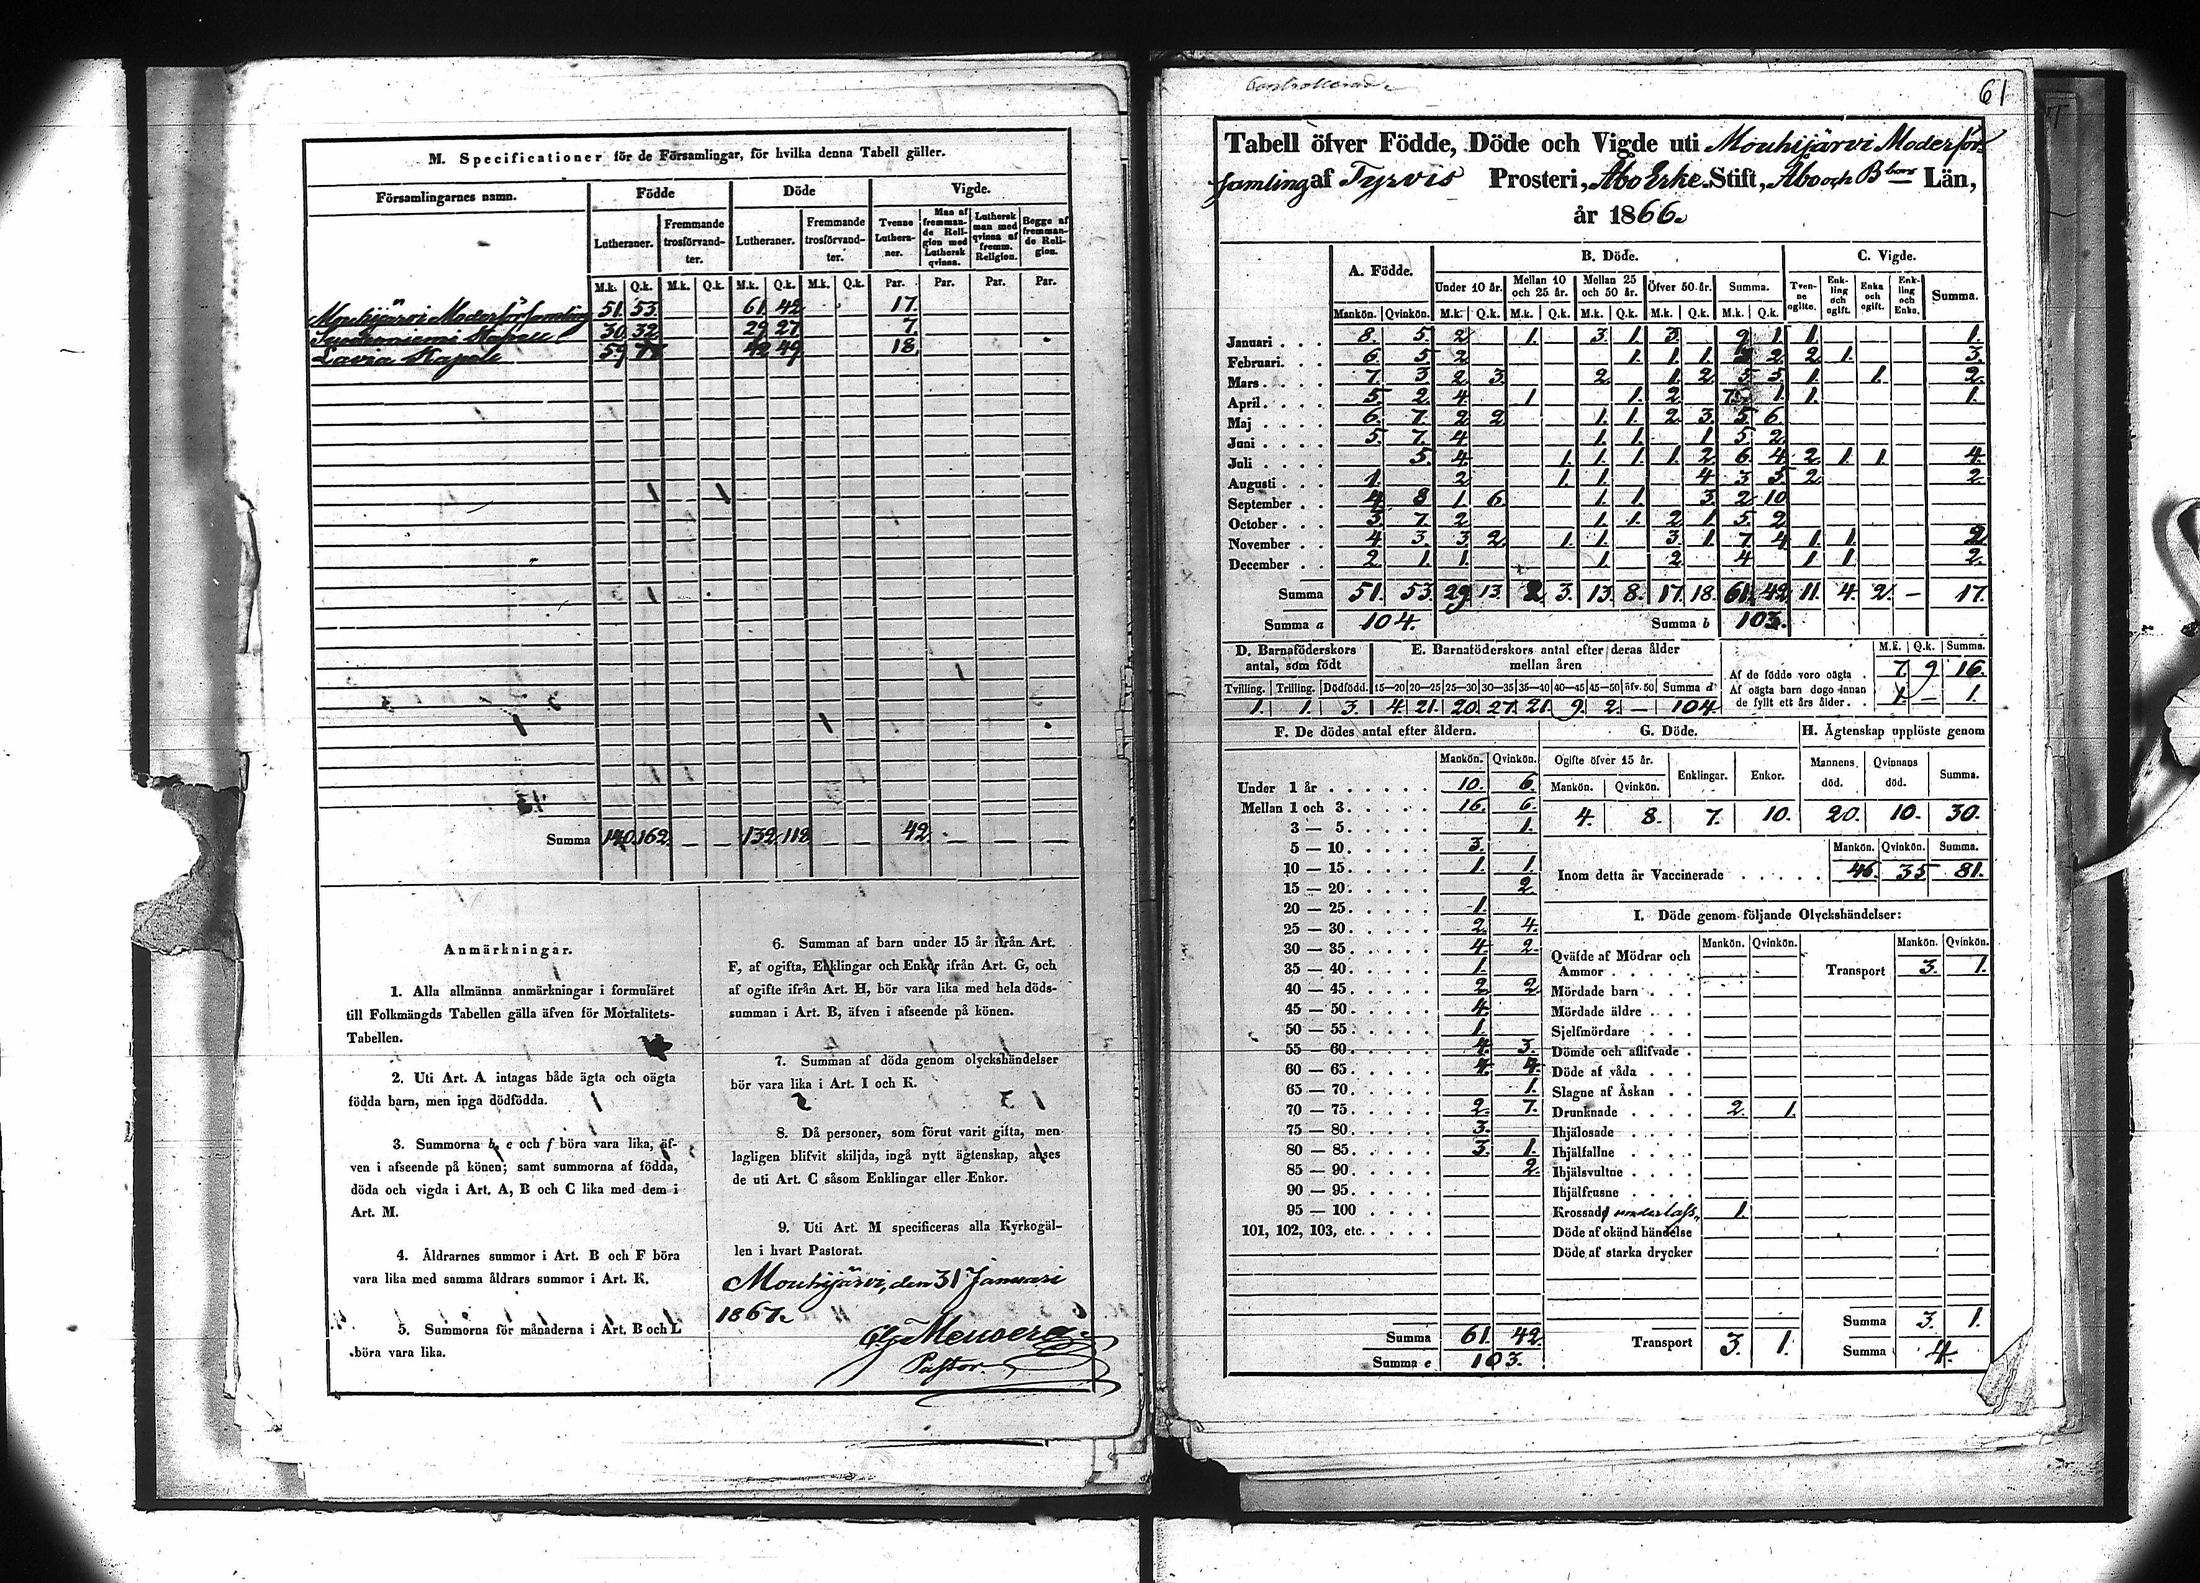 M. Specificationer för de Församlingar, för hvilka denna Tabell gäller.
Församlingarnes namn. Födde Döde Vigde.
Lutheraner. Fremmande trosförvandter. Lutheraner. Fremmande trosförvandter. Tvenne Lutheraner. Man af fremmande Religion med Luthersk qvinna. Luthersk man med qvinna af fremm. Religion. Begge af fremmande Religion.
M.k. Q.k. M.k. Q.k. M.k. Q.k. M.k. Q.k. Par. Par. Par. Par.
Mouhijärvi Moderförsamling 51. 53. 61. 42. 17.
Kapell 30 32 29 27 7.
Lavia Kapell 59 42 49 18.
Summa 140. 162. — — 132. 118. — — 42. — — —
Anmärkningar.
1. Alla allmänna anmärkningar i formuläret
till Folkmängds Tabellen gälla äfven för Mortalitets-
Tabellen.
2. Uti Art. A intagas både ägta och oägta
födda barn, men inga dödfödda.
3. Summorna b, e och f böra vara lika, äf-
ven i afseende på könen; samt summorna af födda,
döda och vigda i Art. A, B och C lika med dem i
Art. M.
4. Åldrarnes summor i Art. B och F böra
vara lika med samma åldrars summor i Art. K.
5. Summorna för månaderna i Art. B och L
böra vara lika.
6. Summan af barn under 15 år ifrån Art.
F, af ogifta, Enklingar och Enkor ifrån Art. G, och
af ogifte ifrån Art. H, bör vara lika med hela döds-
summan i Art. B, äfven i afseende på könen.
7. Summan af döda genom olyckshändelser
bör vara lika i Art. I och K.
8. Då personer, som förut varit gifta, men
lagligen blifvit skiljda, ingå nytt ägtenskap, anses
de uti Art. C såsom Enklingar eller Enkor.
9. Uti Art. M specificeras alla Kyrkogäl-
len i hvart Pastorat.
Mouhijärvi, den 31 Januari
1867.
Pastor.
Controllerad.
61
Tabell öfver Födde, Döde och Vigde uti Mouhijärvi Moderför-
samling af Tyrvis Prosteri, Åbo Erke Stift, Åbo och Bborgs Län,
år 1866.
A. Födde. B. Döde. C. Vigde.
Under 10 år. Mellan 10 och 25 år. Mellan 25 och 50 år. Öfver 50 år. Summa. Tvenne ogifte. Enkling och ogift. Enka och ogift. Enkling och Enka. Summa.
Mankön. Qvinkön. M.k. Q.k. M.k. Q.k. M.k. Q.k. M.k. Q.k. M.k. Q.k.
Januari 8. 5. 2 1. 3. 1. 3. 9. 1. 1. 1.
Februari. 6. 5. 2 1. 1. 1. 3. 2. 2. 1. 3.
Mars 7. 3. 2. 3. 2. 1. 2. 5. 5. 1. 1. 2.
April 5. 2. 4. 1 1. 2. 7. 1. 1. 1.
Maj 6. 7. 2 2 1. 1. 2. 3. 5. 6.
Juni 5. 7. 4 1. 1. 1. 5. 2
Juli 5. 4. 1. 1. 1. 1. 2. 6. 4. 2. 1. 1. 4.
Augusti 1. 2 1. 1. 4. 3. 5. 2. 2.
September 4. 8. 1. 6. 1. 1. 3. 2. 10
October 3. 7. 2 1. 1. 2. 1. 5. 2
November 4. 3. 3. 2. 1. 1. 3. 1. 7. 4. 1. 1. 2.
December 2. 1. 1. 1. 2. 4. 1. 1. 2.
Summa 51. 53. 29. 13. 2. 3. 13. 8. 17. 18. 61. 42. 11. 4. 2. — 17.
Summa a 104. Summa b 103.
D. Barnaföderskors antal, som födt
Tvilling. Trilling. Dödfödd.
1. 1. 3.
E. Barnaföderskors antal efter deras ålder mellan åren
15—20 20—25 25—30 30—35 35—40 40—45 45—50 öfv. 50 Summa d
4. 21. 20. 27. 21. 9. 2. — 104.
M.k. Q.k. Summa.
Af de födde voro oägta 7. 9. 16.
Af oägta barn dogo innan de fyllt ett års ålder 1. — 1.
F. De dödes antal efter åldern.
Mankön. Qvinkön.
Under 1 år 10. 6.
Mellan 1 och 3. 16. 6.
3 — 5. 1.
5 — 10. 3.
10 — 15. 1. 1.
15 — 20. 2
20 — 25. 1.
25 — 30. 2. 4.
30 — 35. 4. 2.
35 — 40. 1.
40 — 45. 2. 2.
45 — 50. 4.
50 — 55. 1.
55 — 60. 4. 3.
60 — 65. 4. 4.
65 — 70. 1.
70 — 75. 2. 7.
75 — 80. 3.
80 — 85. 3. 1.
85 — 90. 2.
90 — 95.
95 — 100
101, 102, 103, etc.
Summa 61. 42.
Summa e 103.
G. Döde.
Ogifte öfver 15 år. Enklingar. Enkor.
Mankön. Qvinkön.
4. 8. 7. 10.
H. Ägtenskap upplöste genom
Mannens död. Qvinnans död. Summa.
20. 10. 30.
Mankön. Qvinkön. Summa.
Inom detta år Vaccinerade 46. 35. 81.
I. Döde genom följande Olyckshändelser:
Mankön. Qvinkön. Mankön. Qvinkön.
Qväfde af Mödrar och Ammor
Transport 3. 1.
Mördade barn
Mördade äldre
Sjelfmördare
Dömde och aflifvade
Döde af våda
Slagne af Åskan
Drunknade 2. 1.
Ihjälosade
Ihjälfallne
Ihjälsvultne
Ihjälfrusne
Krossad under lass 1.
Döde af okänd händelse
Döde af starka drycker
Transport 3. 1.
Summa 3. 1.
Summa 4.